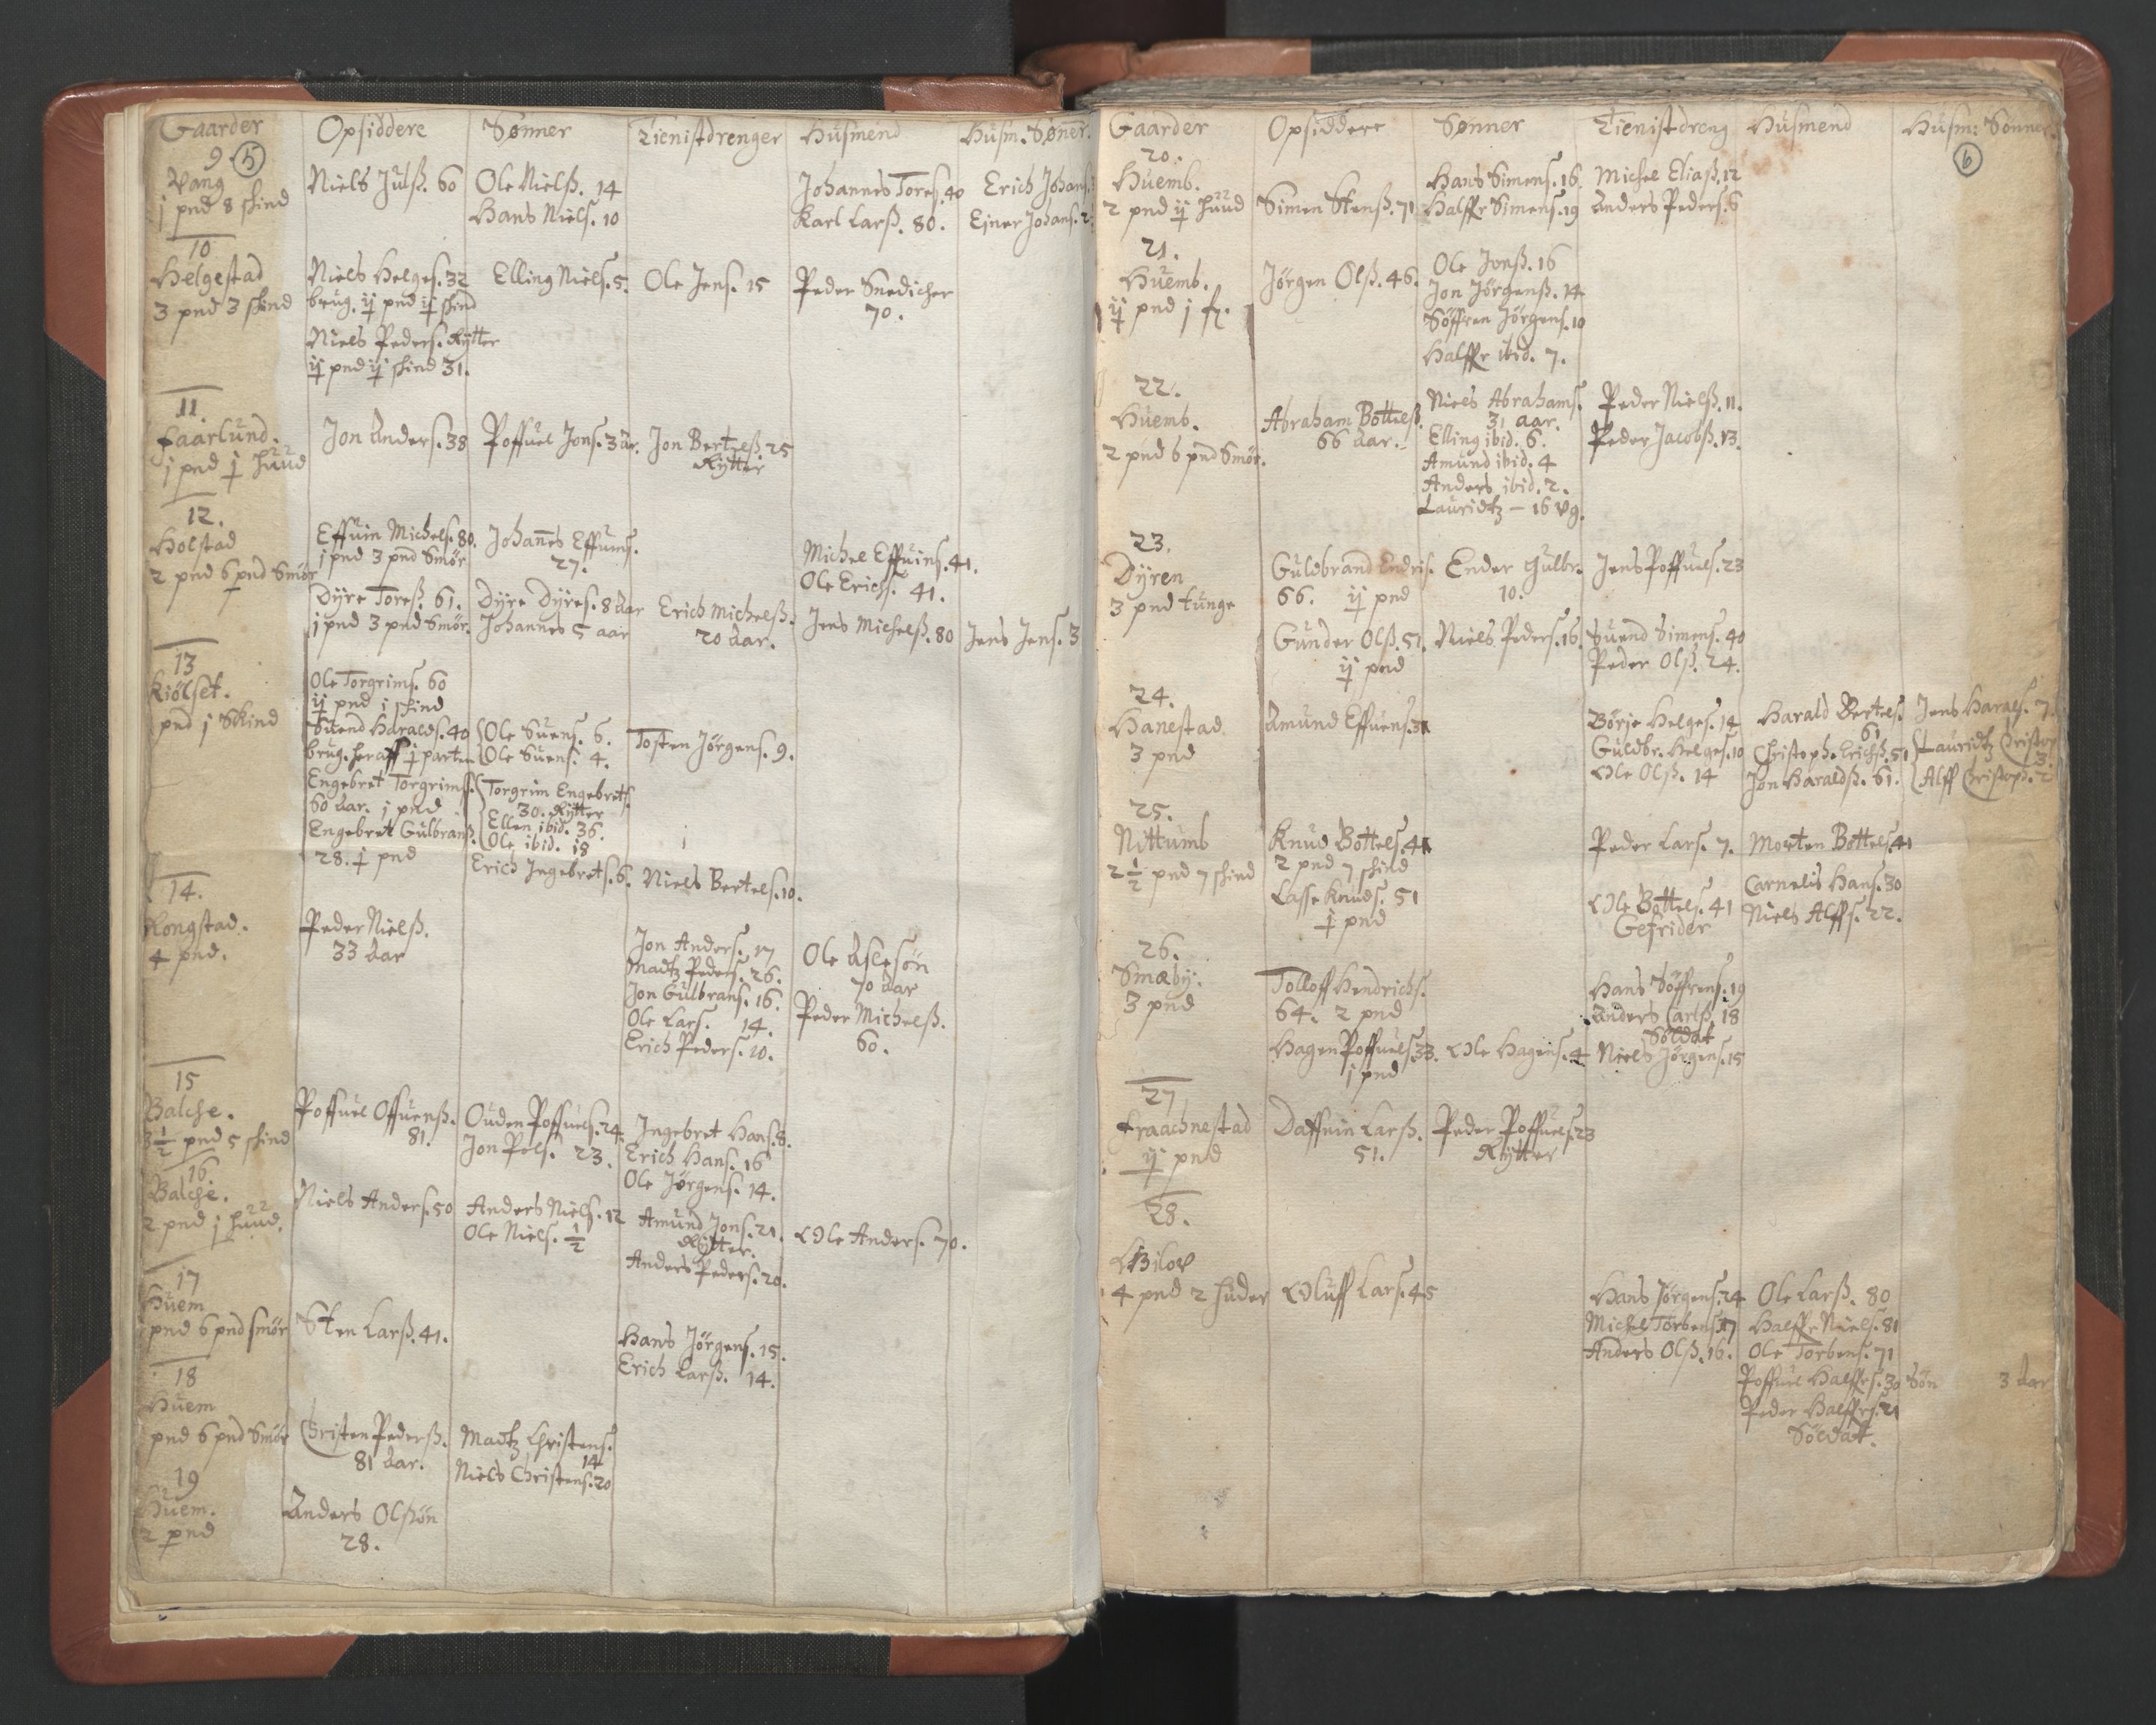 Gaarder Opsiddere Sønner Tienistdrenger Husmend Husm. Sønner.
9. 5
Vang Niels Julß. 60 Ole Nielß. 14 Johannes Tores. 40 Erich Johans.
j pnd 8 skind Hans Niels. 10 Karl Larß. 80. Ejner Johans. 2
10
Helgestad Niels Helges. 32 Elling Niels. 5. Ole Jens. 15 Peder Snedicher
3 pnd 3 skind brug. ij pnd ij skind 70.
Niels Peders. Rytter
ij pnd ij skind 31.
11.
Faarlund. Jon Anders. 38 Poffuel Jons. 3 Ar. Jon Bertelß. 25
j pnd j huud Rytter
12.
Holstad Effuin Michels. 80. Johanes Effuins. Michel Effuins. 41.
2 pnd 6 pnd Smør j pnd 3 pnd Smør 27. Ole Erichs. 41.
Dyre Toreß. 61. Dyre Dyres. 8 Aar Erich Michelß. Jens Michelß. 80 Jens Jens. 3
j pnd 3 pnd Smør. Johannes 5 aar 20 Aar.
13
Kiølset. Ole Torgrims. 60
pnd j Skind ij pnd i skind
Suend Haralds. 40 Ole Suens. 6. Tosten Jørgens. 9.
brug. heraff j parten Ole Suens. 4.
Engebret Torgrimß. Torgrim Engebrets.
60 Aar. j pnd 30. Rytter
Engebret Gulbranß. Ellen ibid. 36.
28. j pnd Ole ibid. 18
Erich Ingebrets. 6. Niels Bertels. 10.
14.
Rongstad. Peder Nielß.
4 pnd. 33 Aar
Jon Anders. 17 Ole Aslesøn
Madtz Peders. 26. 70 Aar
Jon Gulbrans. 16. Peder Michelß.
Ole Lars. 14. 60.
Erich Peders. 10.
15
Balche. Poffuel Offuenß. Ouden Poffuels. 24. Ingebret Hans. 8.
3 1/2 pnd 5 skind 81. Jon Pols. 23. Erich Hans. 16
Ole Jørgens. 14.
16.
Balche. Niels Anders. 50 Anders Niels. 12 Amund Jons. 21. Ole Anders. 70.
2 pnd j huud. Ole Niels. 1/2 Rytter.
Anders Peders. 20.
17
Huem
pnd 6 pnd smør Sten Larß. 41. Hans Jørgens. 15.
Erich Larß. 14.
18
Huem
pnd 6 pnd Smør Christen Pederß. Madtz Christens.
81 Aar. 14
Niels Christens. 20
19
Huem. Anders Olßøn
2 pnd 28.
Gaarder Opsiddere Sønner Tienistdreng Husmend Husm: Sønner.
20. 6
Huemb. Hans Simens. 16. Michel Eliaß. 12
2 pnd ij huud Simen Stenß. 71 Halffr Simens. 19 Anders Peders. 6
21.
Huemb. Jørgen Olß. 46. Ole Jonß. 16
ij pnd j fr. Jon Jørgenß. 14
Søffren Jørgens. 10
Halffr ibid. 7.
22.
Huemb. Abraham Bottelß. Niels Abrahams. Peder Nielß. 11.
2 pnd 6 pnd Smør. 66 Aar. 31 aar. Peder Jacobß. 13.
Elling ibid. 6.
Amund ibid. 4
Anders ibid. 2.
Lauridtz - 16 Vg.
23.
Dyren Guldbrand Endris. Ender Gulbr. Jens Poffuels. 23
3 pnd tunge 66. ij pnd 10.
Gunder Olß. 51. Niels Peders. 16. Suend Simens. 40
ij pnd Peder Olß. 24.
24.
Hanestad Amund Effuens. 31 Børje Helges. 14 Harald Bertels. Jens Harals. 7
3 pnd Guldbr. Helges. 10 61
Christoph. Erichß. 51 Lauridtz Christop.
Ole Olß. 14 3.
Jon Haraldß. 61. Alff Christoph. 2
25.
Nittumb Knud Bottels. 41 Peder Lars. 7. Morten Bottels. 41
2 1/2 pnd 7 skind 2 pnd 7 skind
Lasse Knuds. 51 Ole Bottels. 41 Carnelis Hans. 30
j pnd Gefrider Niels Alffs. 22.
26.
Smæby. Tolloff Hendrichs. Hans Søffrens. 19
3 pnd 64. 2 pnd Anders Carlß. 18
Soldat
Hagen Poffuels. 33. Ole Hagens. 4 Niels Jørgens. 15
j pnd
27
Fraachnestad Daffuin Larß. Peder Poffuels. 23
ij pnd 51. Rytter
28.
Bilov
4 pnd 2 huder Oluff Lars. 45 Hans Jørgens. 24 Ole Larß. 80
Michel Torbens. 17 Halffr Niels. 81
Anders Olß. 16. Ole Torbens. 71
Poffuel Halffrs. 30 Søn 3 Aar
Peder Halffrs. 21
Soldat.